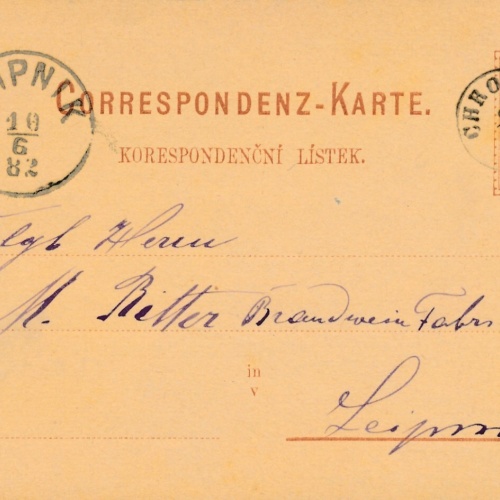 IPNIK
10
6
82
CORRESPONDENZ-KARTE.
KORESPONDENČNÍ LÍSTEK.
CHRO
Herrn
M. Ritter Brandwein Fabri
in
v
Leipn